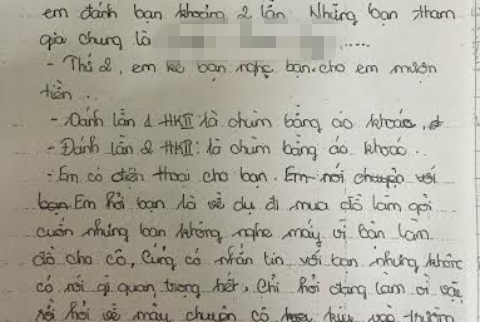 em đánh bạn khoảng 2 lần Những bạn tham
gia chung là .....
- Thứ 2, em kê bạn nghe bạn cho em mượn
tiền ..
- Đánh lần 1 HKII là chùm bằng áo khoác.
- Đánh lần 2 HKII: là chùm bằng áo khoác.
- Em có điện thoại cho bạn. Em nói chuyện với
bạn. Em hỏi bạn là về dụ đi mua đồ làm gỏi
cuốn nhưng bạn không nghe máy vì bận làm
đồ cho cô, Cũng có nhắn tin với bạn nhưng không
có nói gì quan trọng hết, Chỉ hỏi đang làm gì vậy
rồi hỏi về mấy chuyện có vào trường